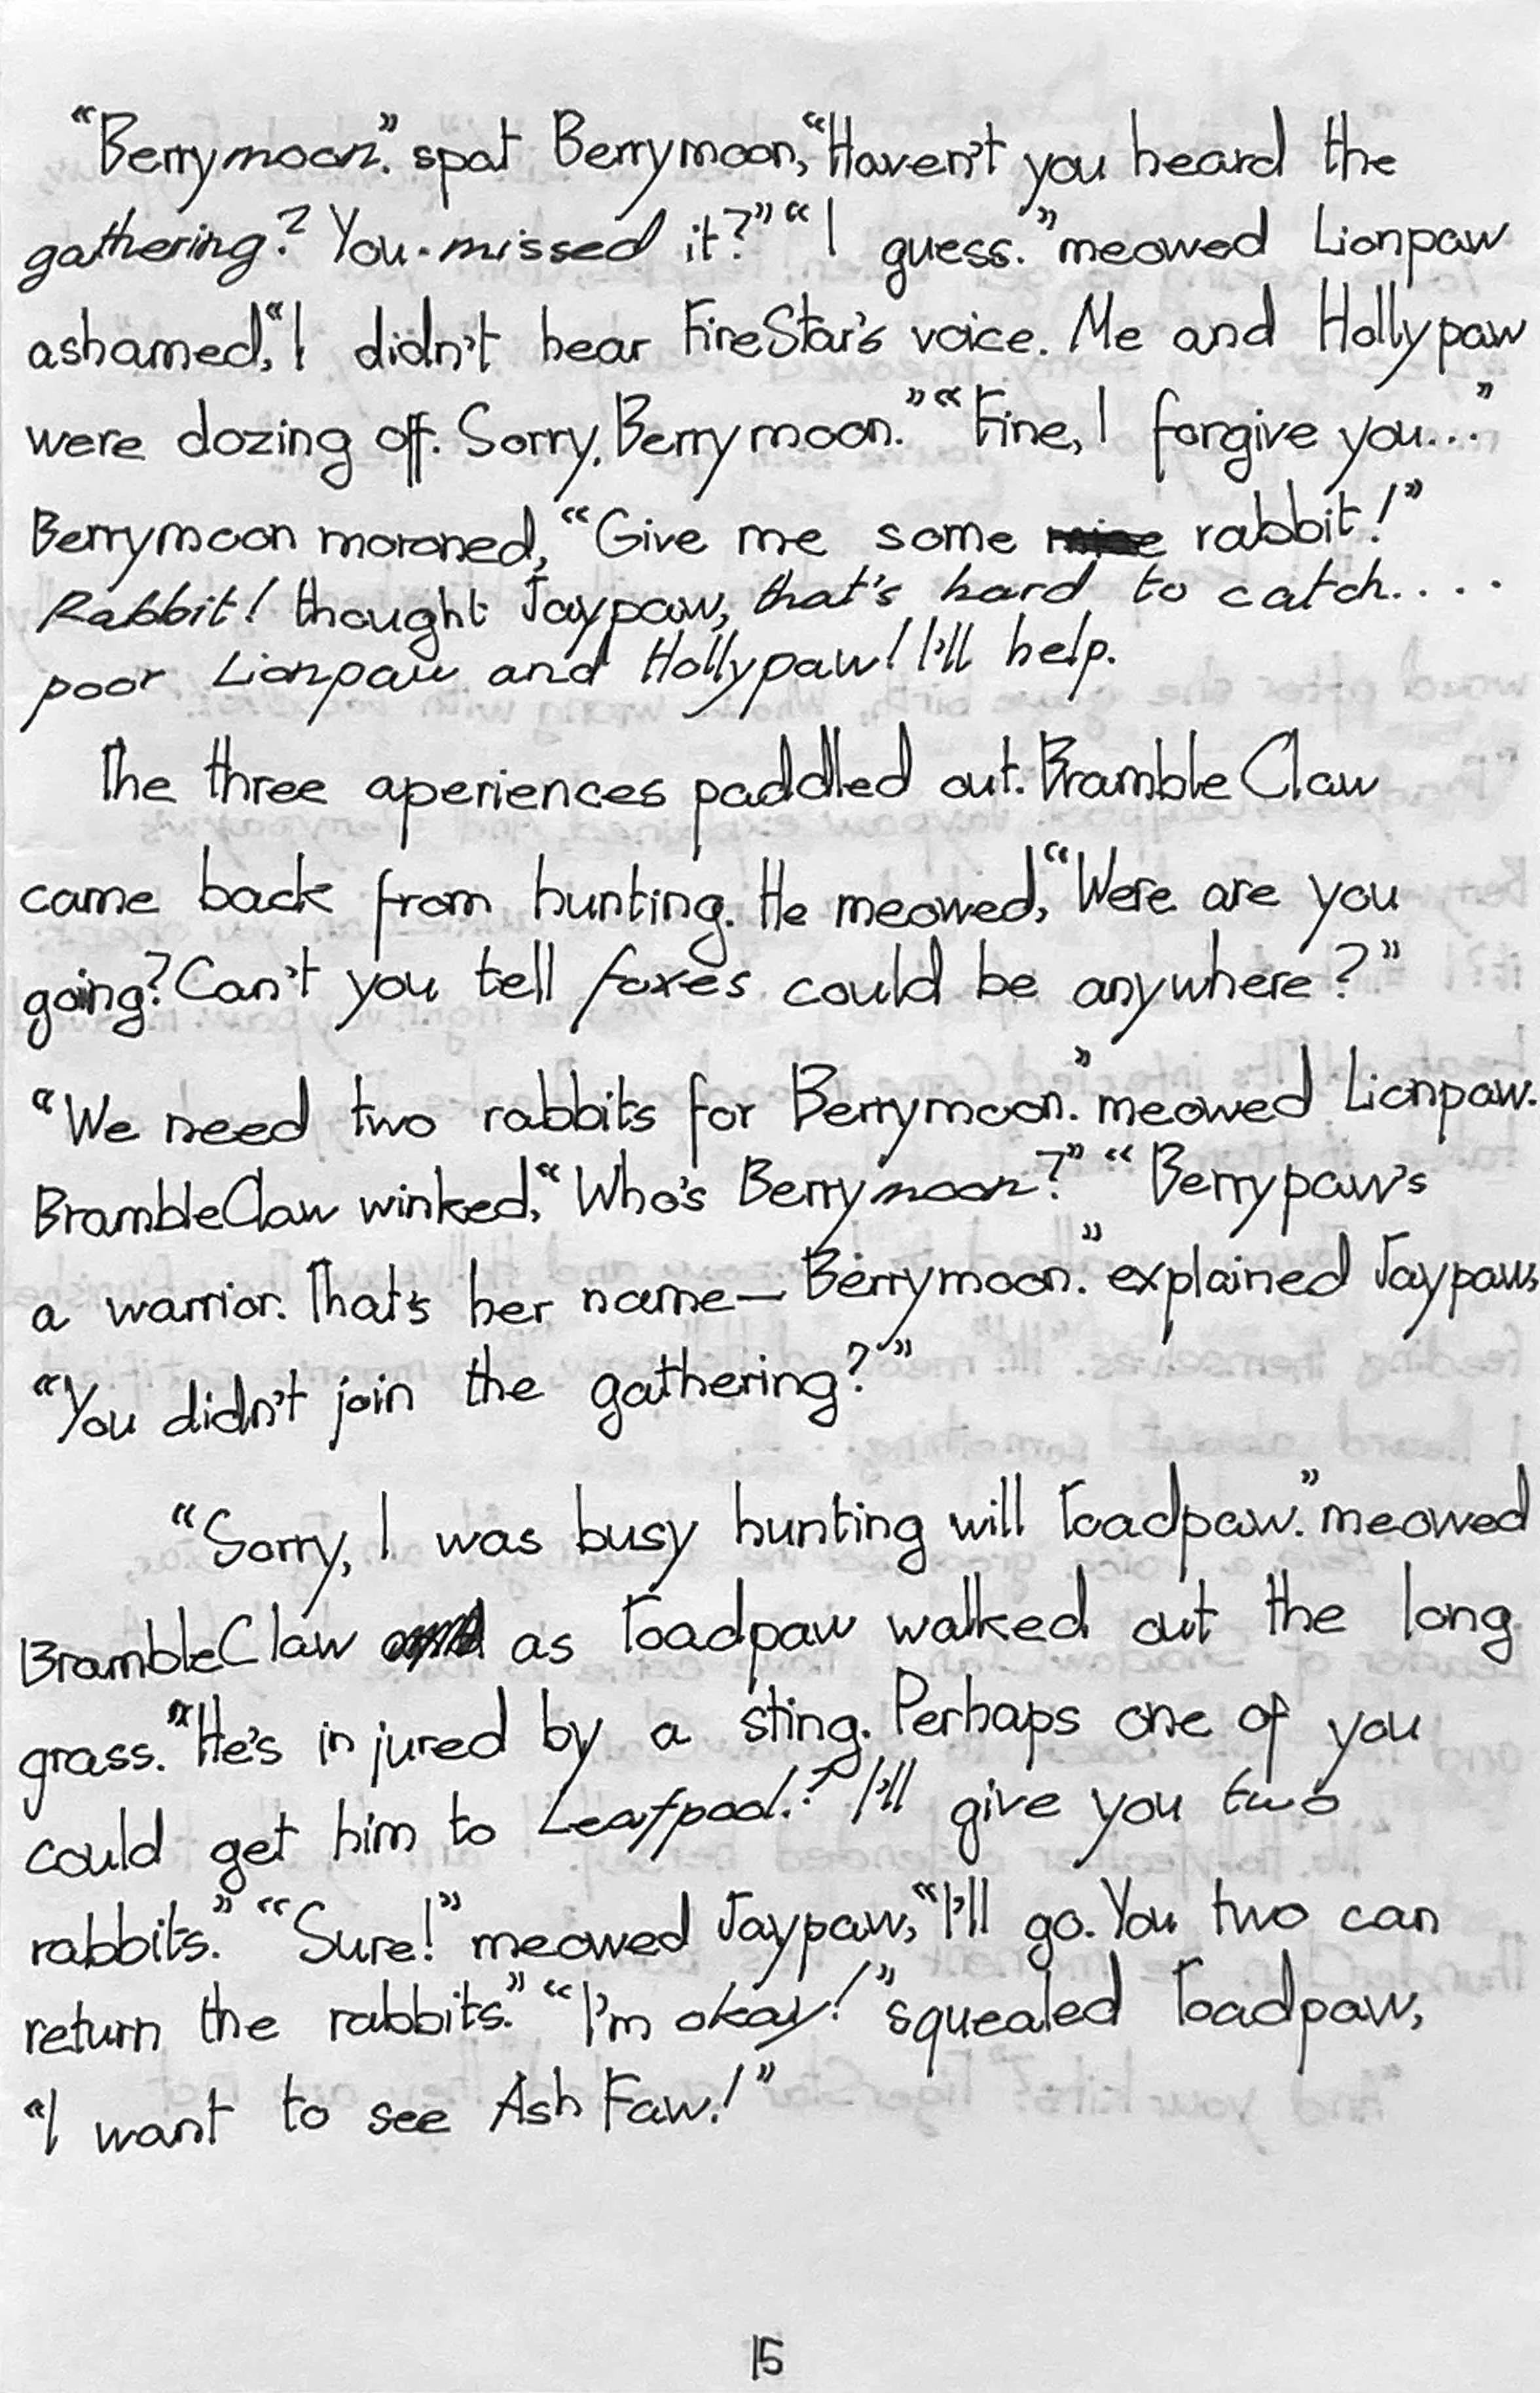 “Berrymoon.” spat Berrymoon, “Haven't you heard the
gathering? You missed it?” “I guess.” meowed Lionpaw
ashamed, “I didn't hear FireStar's voice. Me and Hollypaw
were dozing off. Sorry, Berrymoon.” “Fine, I forgive you...”
Berrymoon moroned, “Give me some rabbit!”
Rabbit! thought Jaypaw, that's hard to catch....
poor Lionpaw and Hollypaw! I'll help.
The three aperiences paddled out. BrambleClaw
came back from hunting. He meowed, “Were are you
going? Can't you tell foxes could be anywhere?”
“We need two rabbits for Berrymoon.” meowed Lionpaw.
BrambleClaw winked, “Who's Berrymoon?” “Berrypaw's
a warrior. That's her name—Berrymoon.” explained Jaypaw,
“You didn't join the gathering?”
“Sorry, I was busy hunting will Toadpaw.” meowed
BrambleClaw as Toadpaw walked out the long
grass. “He's injured by a sting. Perhaps one of you
could get him to Leafpool? I'll give you two
rabbits.” “Sure!” meowed Jaypaw, “I'll go. You two can
return the rabbits.” “I'm okay!” squealed Toadpaw,
“I want to see Ash Faw!”
15